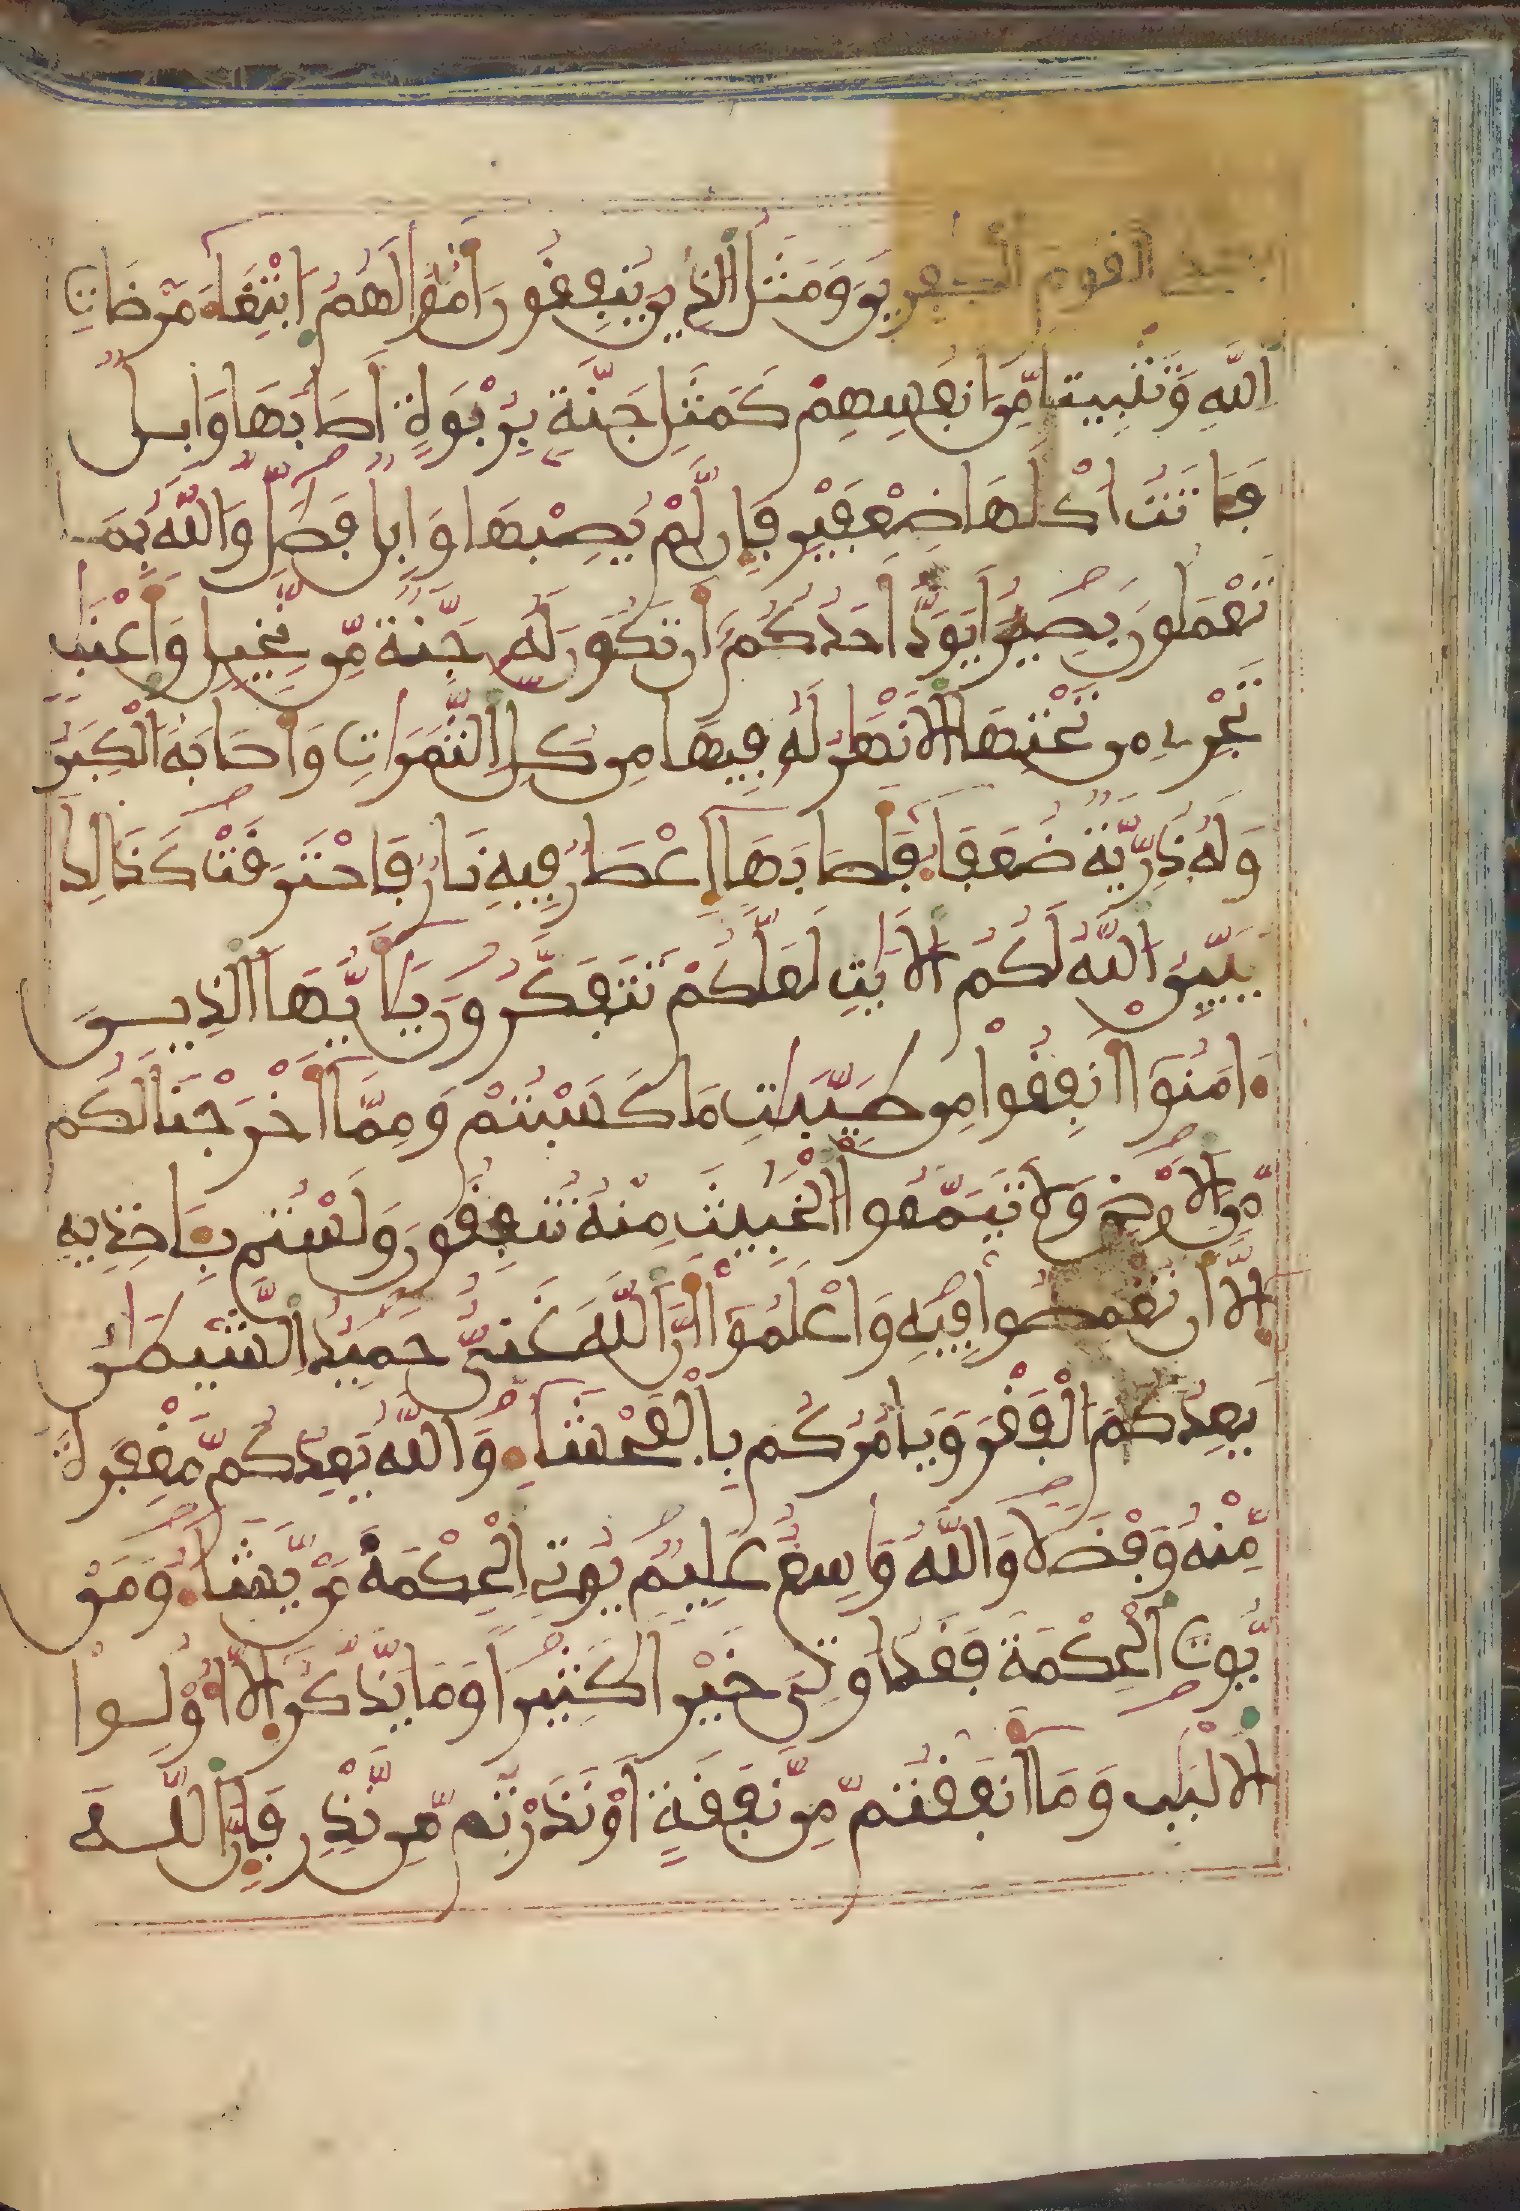 يهدي القوم الكٰفرين ومثل الذين ينفقون أموٰلهم ابتغاء مرضات
الله وتثبيتا من انفسهم كمثل جنة بربوة أصابها وابل
فـاتت اكلها ضعفين فإن لم يصبها وابل فطل والله بما
تعملون بصير أيود أحدكم أن تكون له جنة من نخيل وأعنٰب
تجري من تحتها الانهٰر له فيها من كل الثمرات وأصابه الكبر
وله ذرية ضعفاء فأصابها إعصار فيه نار فاحترقت كذالك
يبين الله لكم الايٰت لعلكم تتفكرون يٰأيها الذين
ءامنوا أنفقوا من طيبٰت ما كسبتم ومما أخرجنا لكم
من الارض ولا تيمموا الخبيث منه تنفقون ولستم بـاخذيه
إلا أن تغمضوا فيه واعلموا أن الله غني حميد الشيطٰن
يعدكم الفقر ويامركم بالفحشاء والله يعدكم مغفرة
منه وفضلا والله واسع عليم يوتي الحكمة من يشاء ومن
يوت الحكمة فقد اوتي خيرا كثيرا وما يذكر إلا أولوا
الالبٰب وما أنفقتم من نفقة أو نذرتم من نذر فإن الله